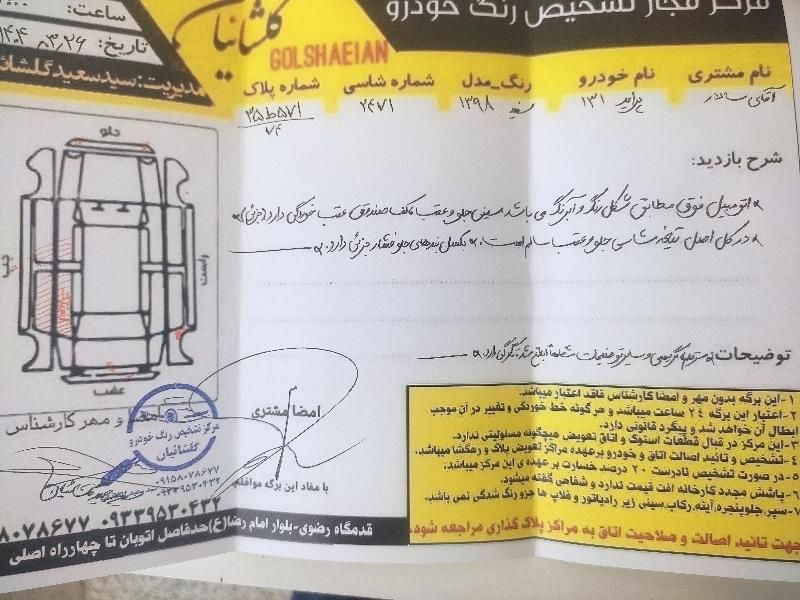 مرکز مجاز تشخیص رنگ خودرو
گلشائیان
GOLSHAEIAN
ساعت:
تاریخ: ۱۴۰۴/۰۳/۲۶
مدیریت: سید سعید گلشائ
نام مشتری
نام خودرو
رنگ_مدل
شماره شاسی
شماره پلاک
آقای
پراید ۱۳۱
سفید ۱۳۹۸
۲۴۷۱
۳۵ط۵۷۱
۷۴
شرح بازدید:
اتومبیل فوق مطابق شکل رنگ و آبرنگ می باشد. سینی جلو و عقب و کف صندوق عقب خوردگی دارد (جزئی)
در کل اصل شاسی جلو و عقب سالم است. جزئی دارد.
توضیحات:
جلو
راست
چپ
عقب
و مهر کارشناس
مرکز تشخیص رنگ خودرو
گلشائیان
۰۹۱۵۸۰۷۸۶۷۷
۰۹۳۳۹۵۳۰۴۳۲
امضا مشتری
با مفاد این برگه موافقم
۱-این برگه بدون مهر و امضا کارشناس فاقد اعتبار میباشد.
۲-اعتبار این برگه ۲۴ ساعت میباشد و هرگونه خط خوردگی و تغییر در آن موجب
ابطال آن خواهد شد و پیگرد قانونی دارد.
۳-این مرکز در قبال قطعات استوک و اتاق تعویض هیچگونه مسئولیتی ندارد.
۴-تشخیص و تائید اصالت اتاق و خودرو برعهده مراکز تعویض پلاک و رهگشا میباشد.
۵-در صورت تشخیص نادرست ۲۰ درصد خسارت بر عهده ی این مرکز میباشد.
۶-پاشش مجدد کارخانه افت قیمت ندارد و شفاهی گفته میشود.
۷-سپر، جلوپنجره، آینه، رکاب، سینی زیر رادیاتور و فلاپ ها جزو رنگ شدگی نمی باشد.
جهت تائید اصالت و صلاحیت اتاق به مراکز پلاک گذاری مراجعه شود.
۸۰۷۸۶۷۷ ۰۹۳۳۹۵۳۰۴۳۲
قدمگاه رضوی-بلوار امام رضا(ع)حدفاصل اتوبان تا چهارراه اصلی